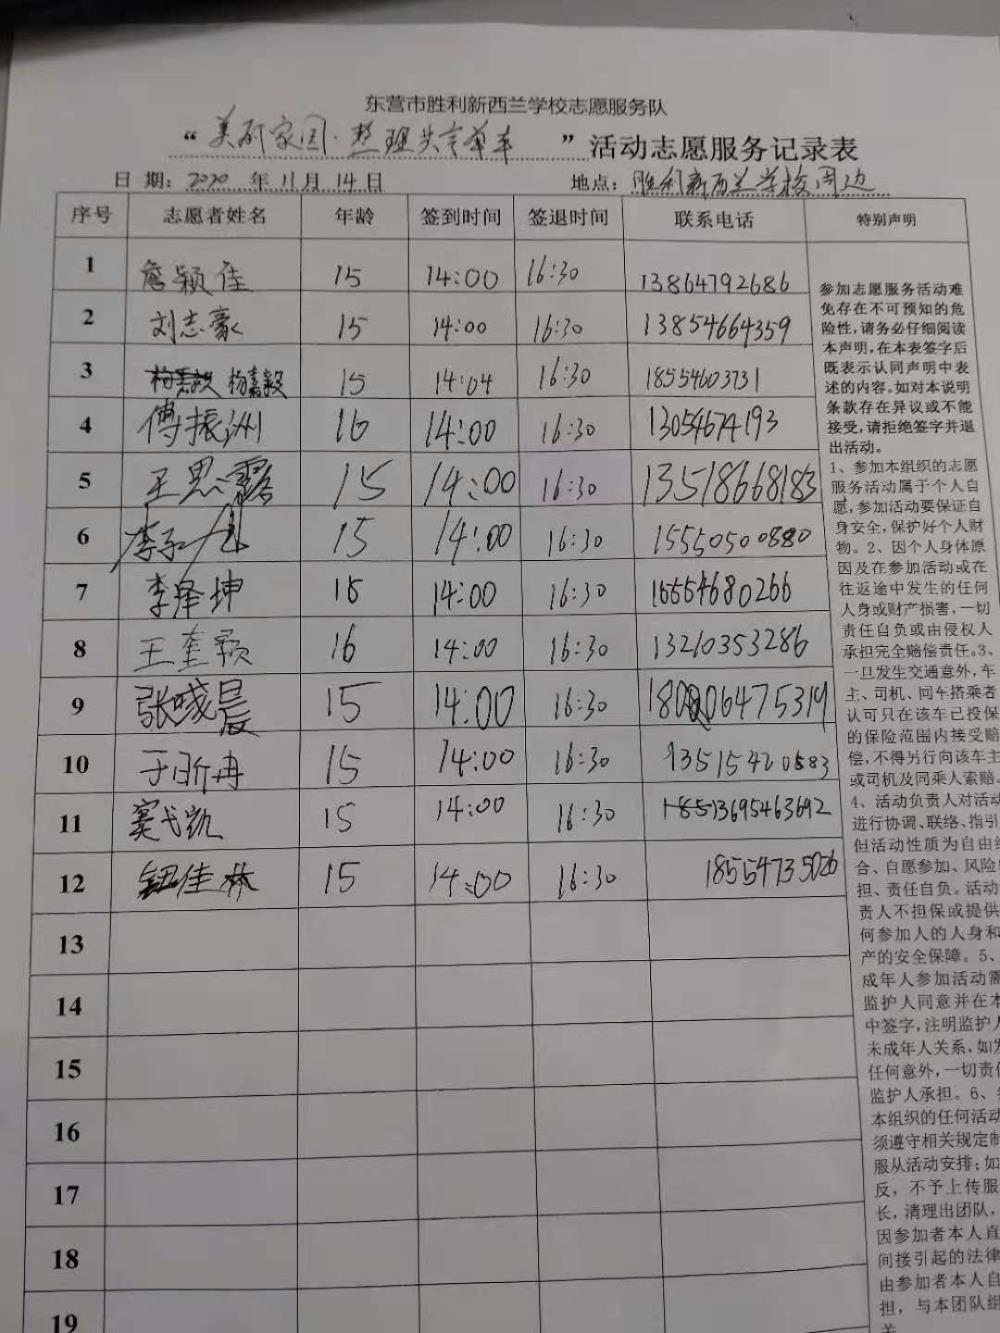 东营市胜利新西兰学校志愿服务队
“美丽家园·整理共享单车”活动志愿服务记录表
日 期: 2020 年 11 月 14 日 地点: 胜利新西兰学校周边
序号 志愿者姓名 年龄 签到时间 签退时间 联系电话 特别声明
1 詹颖佳 15 14:00 16:30 13864792686
2 刘志豪 15 14:00 16:30 13854664359
3 杨嘉毅 15 14:04 16:30 18554603731
4 傅振洲 16 14:00 16:30 13054674193
5 王思露 15 14:00 16:30 13518668183
6 李 15 14:00 16:30 15550500880
7 李泽坤 16 14:00 16:30 16554680266
8 王奎颖 16 14:00 16:30 13210353286
9 张晨 15 14:00 16:30
10 于昕冉 15 14:00 16:30 13515420583
11 窦弋凯 15 14:00 16:30 13695463692
12 钮佳林 15 14:00 16:30 18554735026
13
14
15
16
17
18
19
参加志愿服务活动难
免存在不可预知的危
险性,请务必仔细阅读
本声明,在本表签字后
既表示认同声明中表
述的内容。如对本说明
条款存在异议或不能
接受,请拒绝签字并退
出活动。
1、参加本组织的志愿
服务活动属于个人自
愿,参加活动要保证自
身安全,保护好个人财
物。2、因个人身体原
因及在参加活动或在
往返途中发生的任何
人身或财产损害,一切
责任自负或由侵权人
承担完全赔偿责任。3、
一旦发生交通意外,车
主、司机、同车搭乘者
认可只在该车已投保
的保险范围内接受赔
偿,不得另行向该车主
或司机及同乘人索赔。
4、活动负责人对活动
进行协调、联络、指引
但活动性质为自由
合、自愿参加、风险
担、责任自负。活动
责人不担保或提供
何参加人的人身和
产的安全保障。5、
成年人参加活动需
监护人同意并在本
中签字,注明监护人
未成年人关系,如发
任何意外,一切责任
监护人承担。6、
本组织的任何活动
须遵守相关规定制
服从活动安排;如
反,不予上传服
长,清理出团队,
因参加者本人直
间接引起的法律
由参加者本人自
担,与本团队组
关